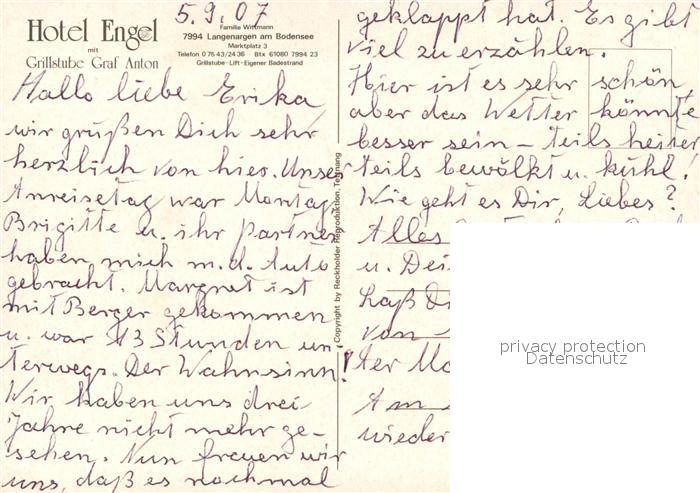 5.9.07
Hotel Engel
mit
Grillstube Graf Anton
Familie Wittmann
7994 Langenargen am Bodensee
Marktplatz 3
Telefon 07543/2436 Btx 61080 7994 23
Grillstube - Lift - Eigener Badestrand
Hallo liebe Erika,
wir grüßen Dich sehr
herzlich von hier. Unser
Anreisetag war Montag
Brigitte u. ihr Partner
haben mich m. d. Auto
gebracht. Margret ist
mit Berger gekommen
u. war 13 Stunden un-
terwegs. Der Wahnsinn!
Wir haben uns drei
Jahre nicht mehr ge-
sehen. Nun freuen wir
uns, daß es nochmal
Copyright by Reckholder Reproduktion, Tettnang
geklappt hat. Es gibt
viel zu erzählen.
Hier ist es sehr schön,
aber das Wetter könnte
besser sein - teils heiter
teils bewölkt u. kühl!
Wie geht es Dir, Liebes?
Alles
u.
Laß
von
ter
Am
wieder
privacy protection
Datenschutz